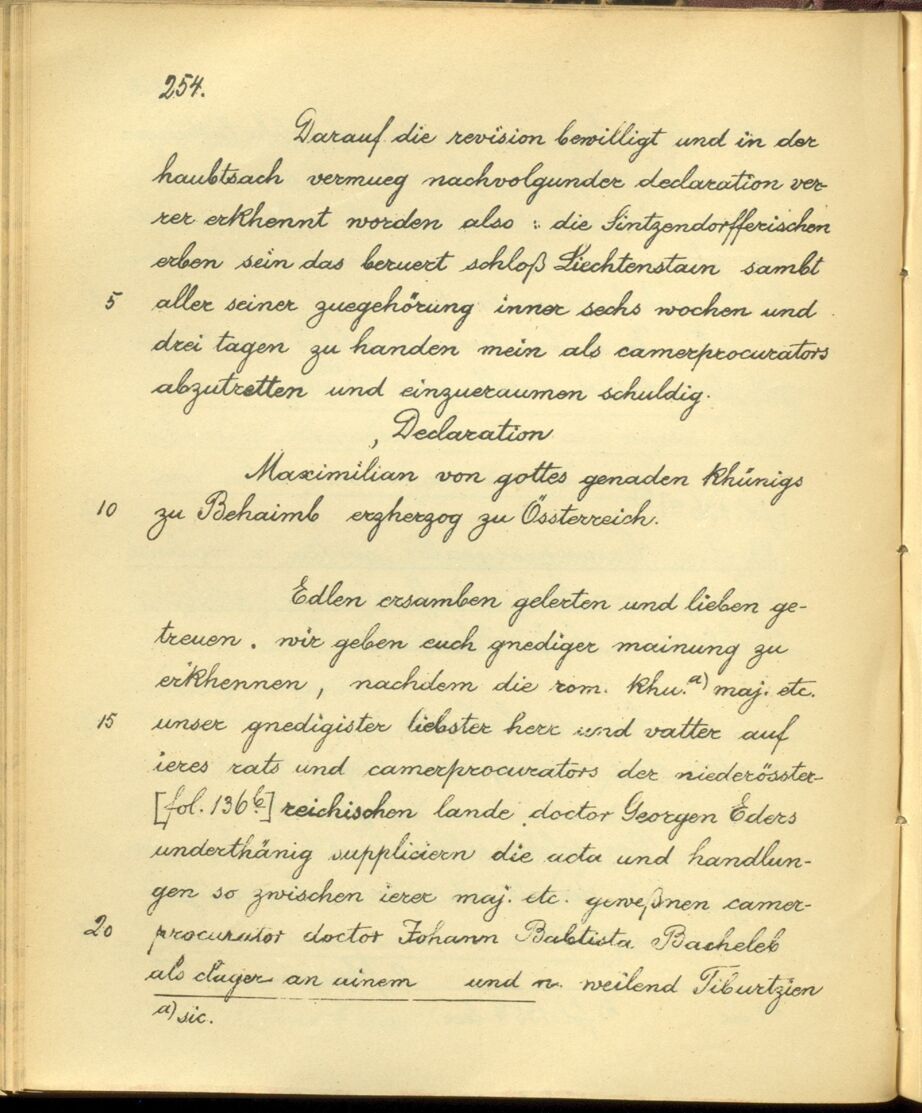 254.
Darauf die revision bewilligt und in der
haubtsach vermueg nachvolgunder declaration ver-
rer erkhennt worden also : die Sintzendorfferischen
erben sein das beruert schloß Liechtenstain sambt
5 aller seiner zuegehörung inner sechs wochen und
drei tagen zu handen mein als camerprocurators
abzutretten und einzueraumen schuldig.
Declaration
Maximilian von gottes genaden khünigs
10 zu Behaimb erzherzog zu Össterreich.
Edlen ersamben gelerten und lieben ge-
treuen. wir geben euch gnediger mainung zu
erkhennen, nachdem die rom. khu. a) maj. etc.
15 unser gnedigister liebster herr und vatter auf
ieres rats und camerprocurators der niederösster-
[fol. 136 b] reichischen lande doctor Georgen Eders
underthänig suppliciern die acta und handlun-
gen so zwischen ierer maj. etc. geweßnen camer-
20 procurator doctor Johann Babtista Bacheleb
als clager an ainem und n. weilend Tiburtzien
a) sic.